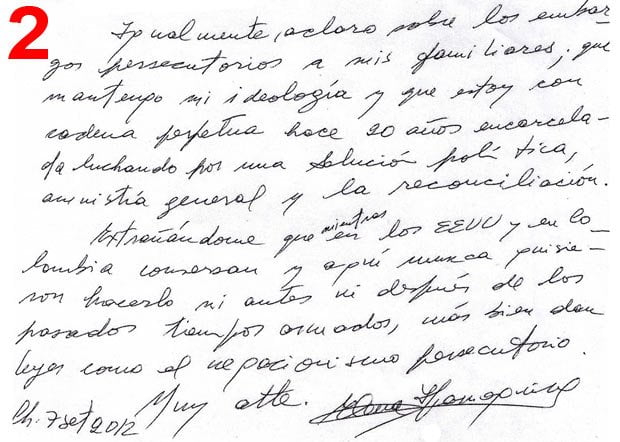 2
Igualmente, aclaro sobre los embar-
gos persecutorios a mis familiares; que
mantengo mi ideología y que estoy con
cadena perpetua hace 20 años encarcela-
da luchando por una solución política,
amnistía general y la reconciliación.
Extrañándome que mientras en los EEUU y en Co-
lombia conversan y aquí nunca quisie-
ron hacerlo ni antes ni después de los
pasados tiempos armados, más bien dan
leyes como el negacionismo persecutorio.
Muy atte.
Ch. 7 set 2012